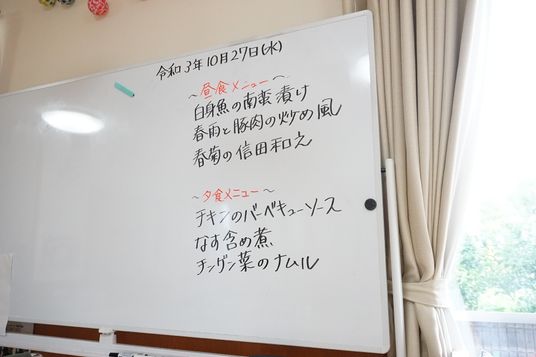 令和3年10月27日(水)
～昼食メニュー～
白身魚の南蛮漬け
春雨と豚肉の炒め風
春菊の信田和え
～夕食メニュー～
チキンのバーベキューソース
なす含め煮
チンゲン菜のナムル